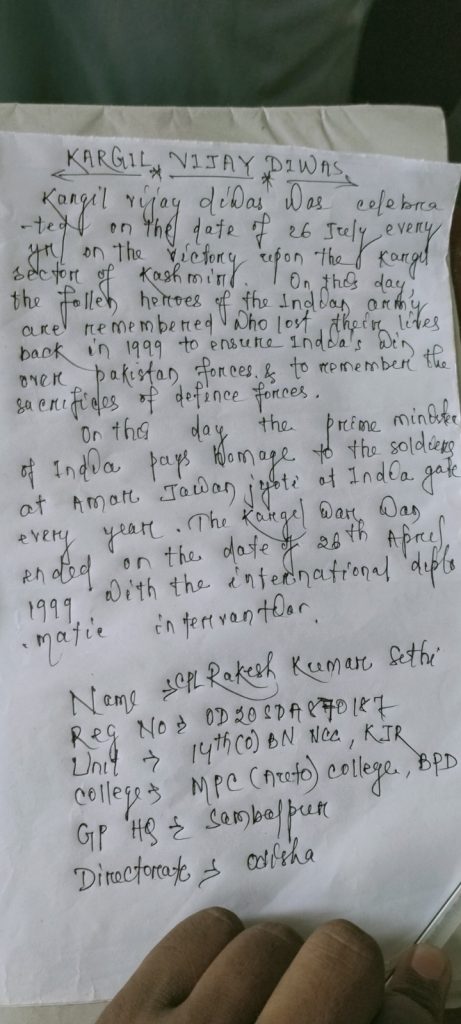 KARGIL VIJAY DIWAS
Kargil vijay diwas was celebra
-ted on the date of 26 July every
yr on the victory upon the Kargil
sector of Kashmir. On this day,
the fallen heroes of the Indian army
are remembered who lost their lives
back in 1999 to ensure India's win
over pakistan forces. & to remember the
sacrifices of defence forces.
On this day the prime minister
of India pays Homage to the soldiers
at Amar Jawan jyoti at India gate
every year. The Kargil war was
ended on the date of 26th April
1999 with the international diplo
.matic intervantion.
Name → CPL Rakesh Kumar Sethi
Reg No → OD20SDA870187
Unit → 14th(O) BN NCC, KJR
college → MPC (Auto) college, BPD
GP HQ → Sambalpur
Directorate → odisha